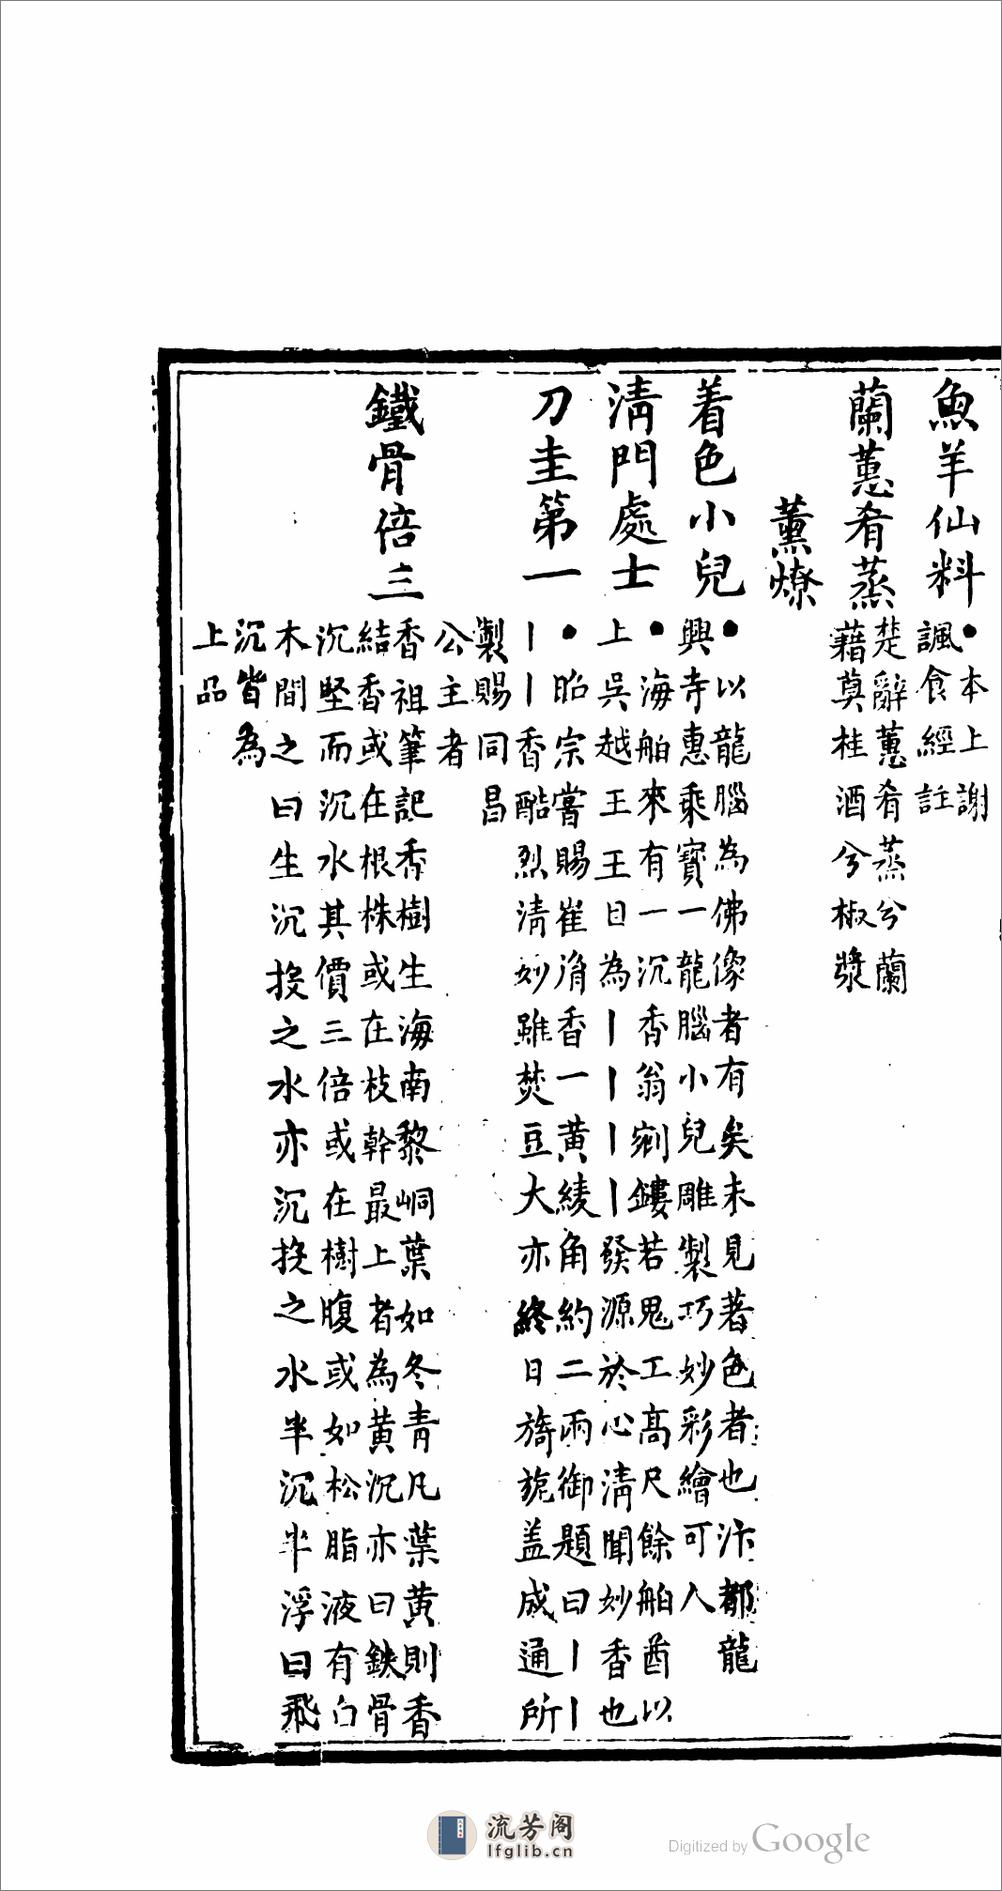 魚羊仙料
●本上謝
諷食經註
蘭蕙肴蒸
楚辭蕙肴蒸兮蘭
藉莫桂酒兮椒漿
薰燎
着色小兒
●以龍腦為佛像者有矣未見著色者也汴都龍
興寺惠乘寳一龍腦小兒雕製巧妙彩繪可入
清門處士
●海舶來有一沉香翁剜鏤若鬼工高尺餘舶酋以
上吳越王王目為丨丨丨丨發源於心清聞妙香也
刀圭第一
●昭宗嘗賜崔胤香一黄綾角約二兩御題曰丨丨
丨丨香酷烈清妙雖焚豆大亦終日旖旎盖咸通所
製賜同昌
公主者
鐵骨倍三
香祖筆記香樹生海南黎峒葉如冬青凡葉黄則香
結香或在根株或在枝幹最上者為黄沉亦曰鉄骨
沉堅而沉水其價三倍或在樹腹或如松脂液有白
木間之曰生沉投之水亦沉投之水半沉半浮曰飛
沉皆為
上品
流芳阁
lfglib.cn
Digitized by Google